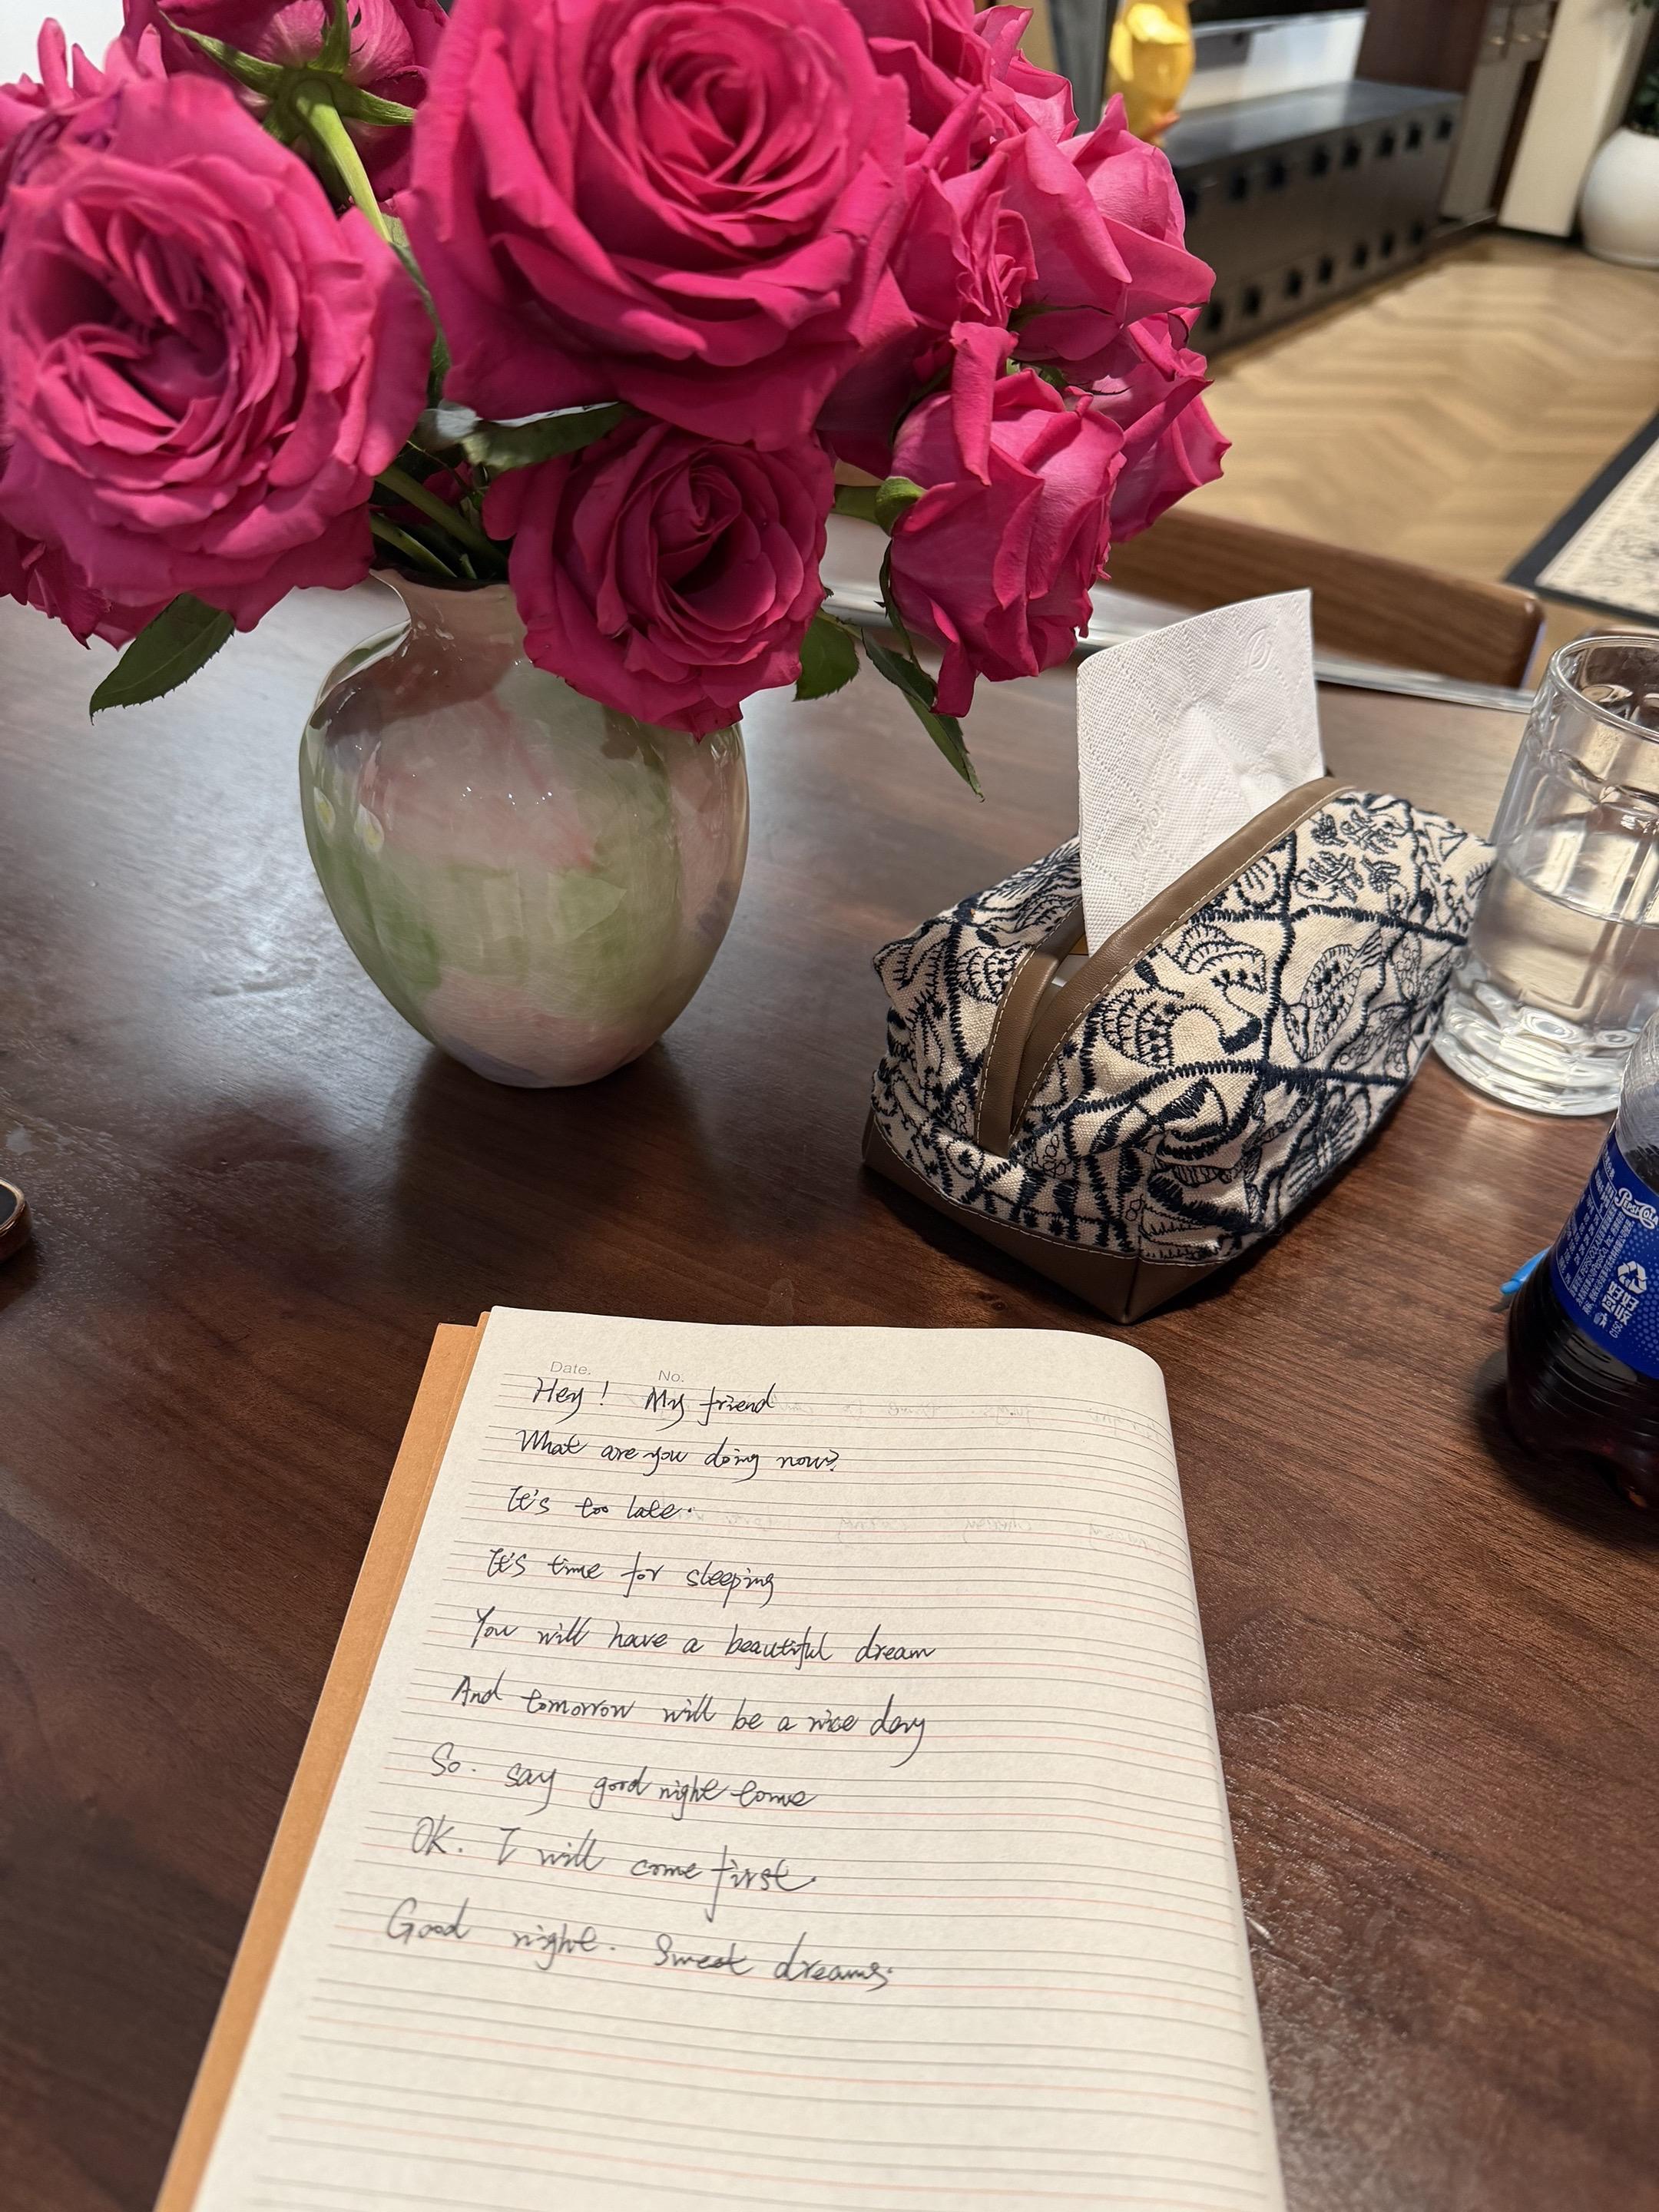 Date. No.
Hey! My friend
What are you doing now?
It's too late.
It's time for sleeping
You will have a beautiful dream
And tomorrow will be a nice day
So. say good night tome
OK. I will come first.
Good night. Sweet dreams.
PEPSI-COLA